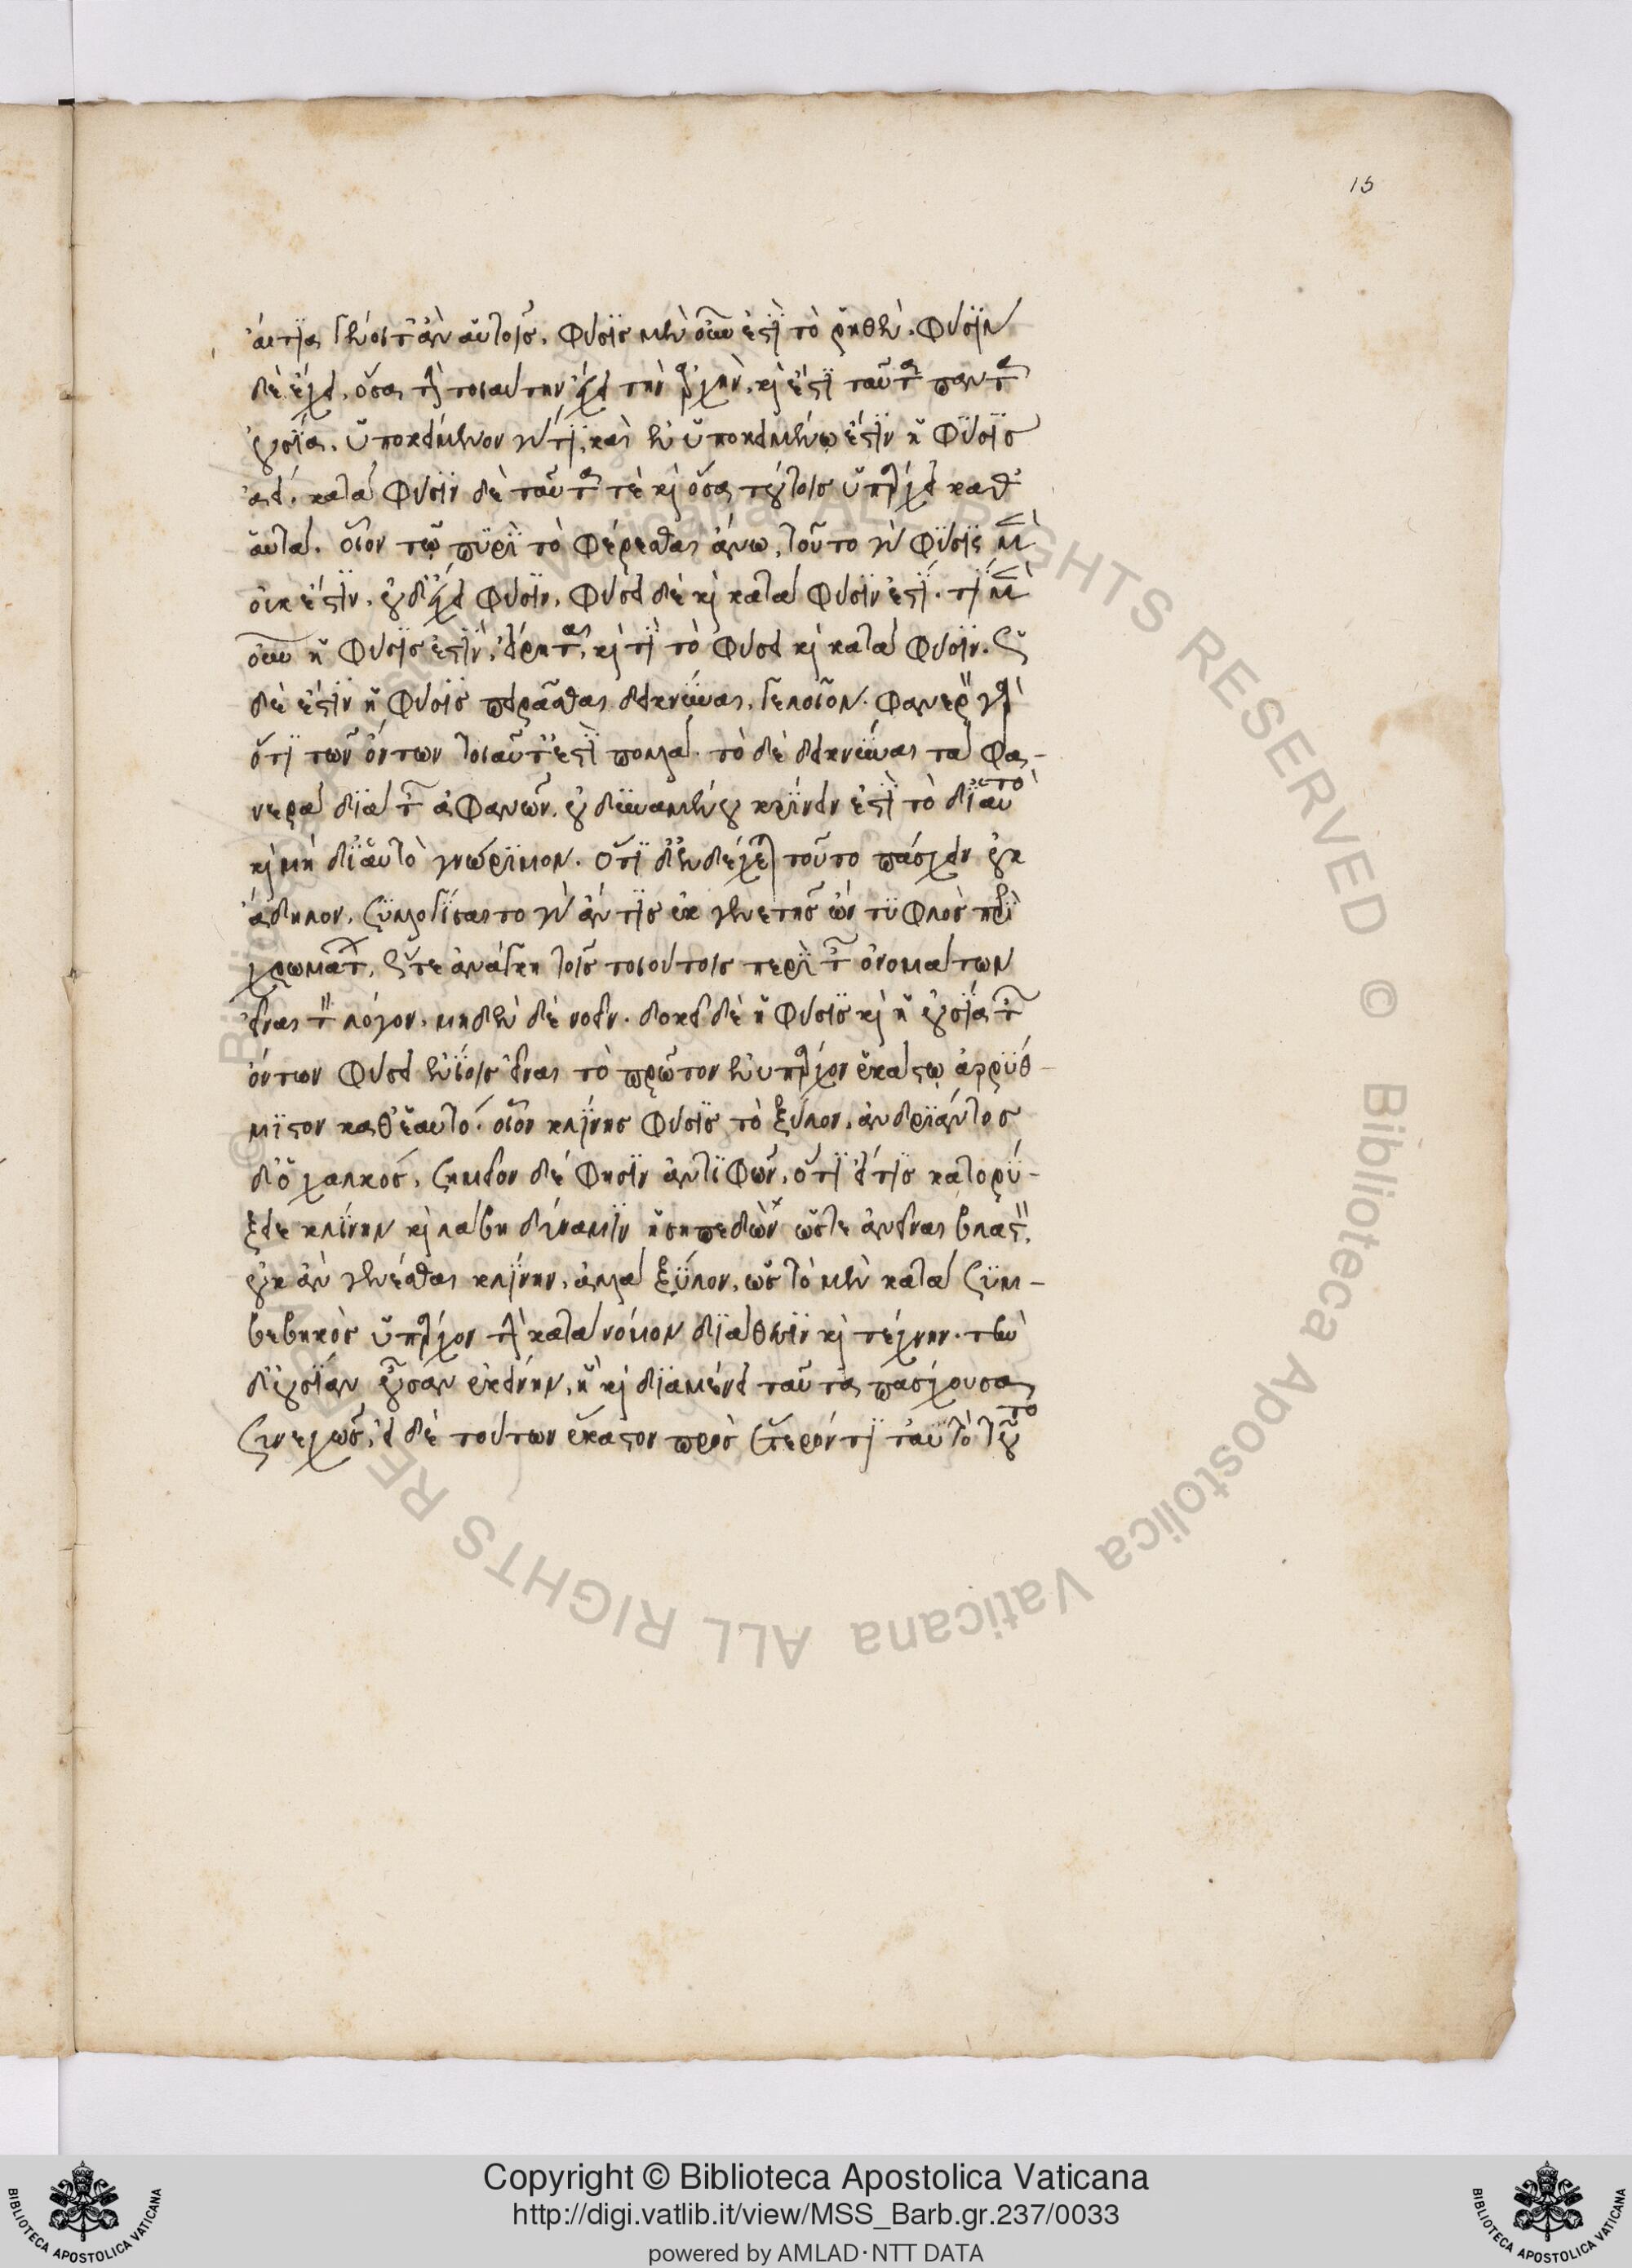 15
αἴτια γένοιτ' ἂν αὐτοῖς. φύσις μὲν οὖν ἐστὶ τὸ ῥηθέν. φύσιν
δὲ ἔχει, ὅσα τὴν τοιαύτην ἔχει τὴν ἀρχήν. καὶ ἔστι ταῦτα πάντα
οὐσία. ὑποκείμενον γάρ τι, καὶ ἐν ὑποκειμένῳ ἐστὶν ἡ φύσις
ἀεί. κατὰ φύσιν δὲ ταῦτά τε καὶ ὅσα τούτοις ὑπάρχει καθ'
αὑτά. οἷον τῷ πυρὶ τὸ φέρεσθαι ἄνω. τοῦτο γὰρ φύσις μὲν
οὐκ ἔστιν. οὐδ' ἔχει φύσιν. φύσει δὲ καὶ κατὰ φύσιν ἐστί. τί μὲν
οὖν ἡ φύσις ἐστίν, εἴρηται, καὶ τί τὸ φύσει καὶ κατὰ φύσιν. ὡς
δὲ ἔστιν ἡ φύσις πειρᾶσθαι δεικνύναι, γελοῖον. φανερὸν γὰρ
ὅτι τῶν ὄντων τοιαῦτ' ἐστὶ πολλά. τὸ δὲ δεικνύναι τὰ φα-
νερὰ διὰ τῶν ἀφανῶν. οὐ δυναμένου κρίνειν ἐστὶ τὸ δι' αὐτὸ
καὶ μὴ δι' αὐτὸ γνώριμον. ὅτι δ' ἐνδέχεται τοῦτο πάσχειν οὐκ
ἄδηλον. συλλογίσαιτο γὰρ ἄν τις ἐκ γενετῆς ὢν τυφλὸς περὶ
χρωμάτων. ὥστε ἀνάγκη τοῖς τοιούτοις περὶ τῶν ὀνομάτων
εἶναι τὸν λόγον. μηδὲν δὲ νοεῖν. δοκεῖ δὲ ἡ φύσις καὶ ἡ οὐσία τῶν
ὄντων φύσει ἐνίοις εἶναι τὸ πρῶτον ἐνυπάρχον ἑκάστῳ ἀρρύθ-
μιστον καθ' ἑαυτό. οἷον κλίνης φύσις τὸ ξύλον. ἀνδριάντος
δ' ὁ χαλκός. σημεῖον δέ φησιν ἀντιφῶν, ὅτι εἴ τις κατορύ-
ξειε κλίνην καὶ λάβῃ δύναμιν ἡ σηπεδὼν ὥστε ἀνεῖναι βλαστόν.
οὐκ ἂν γενέσθαι κλίνην. ἀλλὰ ξύλον. ὡς τὸ μὲν κατὰ συμ-
βεβηκὸς ὑπάρχον τὴν κατὰ νόμον διάθεσιν καὶ τέχνην. τὴν
δ' οὐσίαν οὖσαν ἐκείνην, ἣ καὶ διαμένει ταῦτα πάσχουσα
συνεχῶς. εἰ δὲ τούτων ἕκαστον πρὸς ἕτερόν τι ταὐτὸ τοῦτο
Copyright © Biblioteca Apostolica Vaticana
http://digi.vatlib.it/view/MSS_Barb.gr.237/0033
powered by AMLAD·NTT DATA